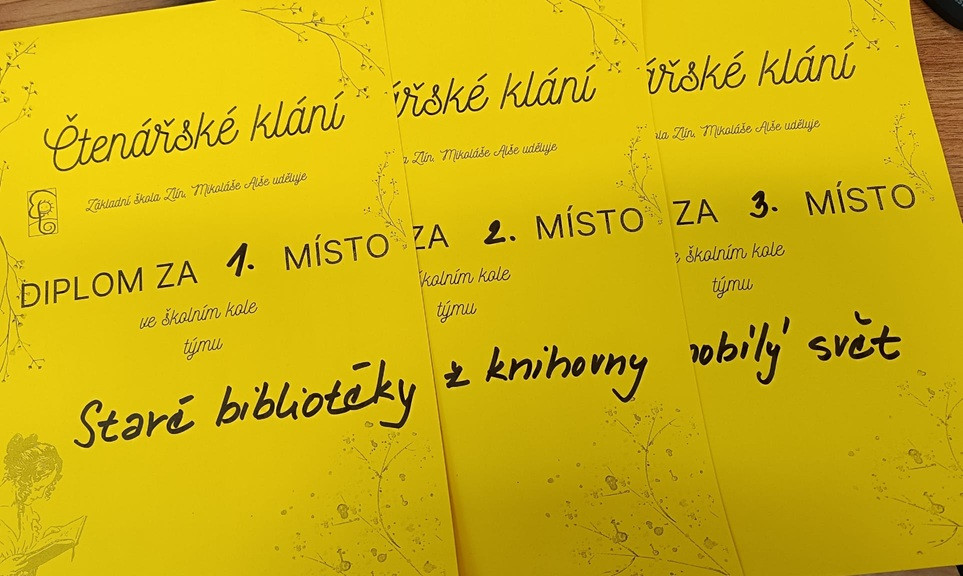 Čtenářské klání
Základní škola Zlín, Mikoláše Alše uděluje
DIPLOM ZA 1. MÍSTO
ve školním kole
týmu
Staré bibliotéky
ářské klání
a Zlín, Mikoláše Alše uděluje
ZA 2. MÍSTO
školním kole
týmu
z knihovny
ářské klání
ola Zlín, Mikoláše Alše uděluje
ZA 3. MÍSTO
e školním kole
týmu
nobílý svět